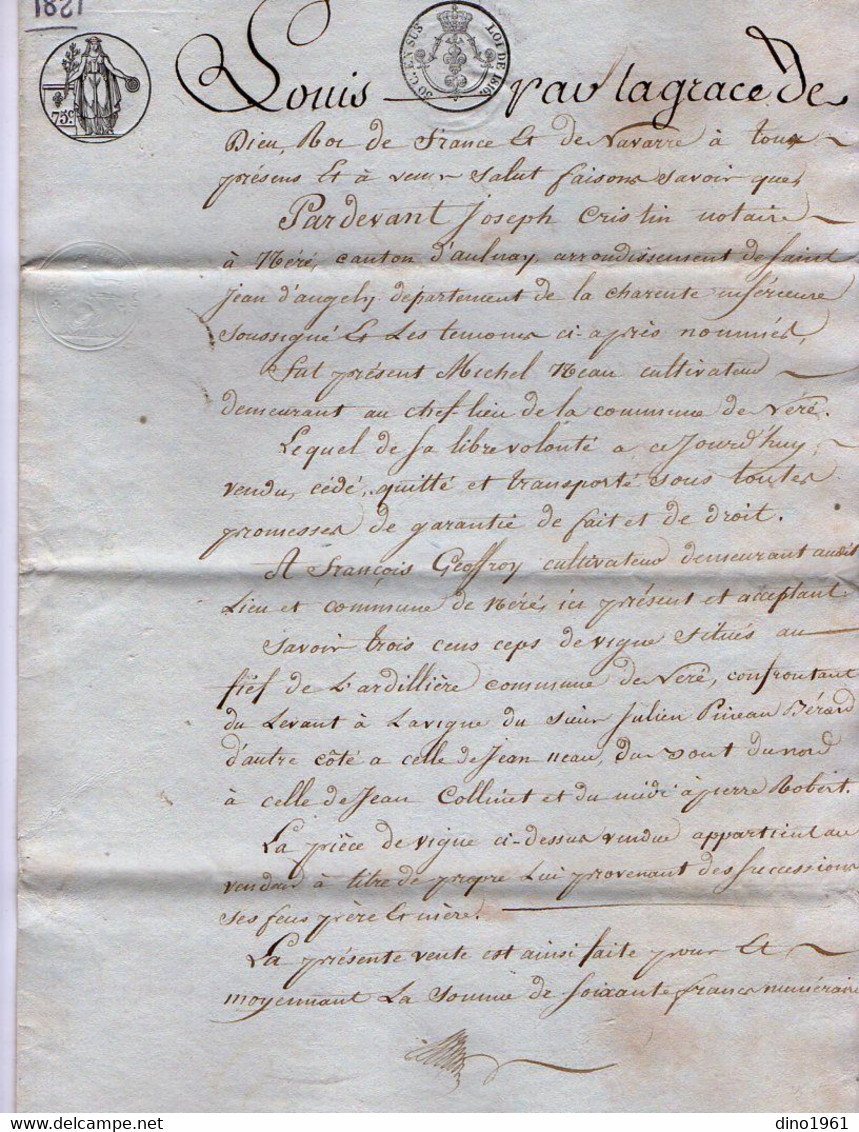 1821
75c.
50 C. EN SUS
LOI DE 1816
Louis par la grace de
Dieu, Roi de France Et de Navarre à tous
présens Et à venir Salut faisons Savoir que,
Pardevant Joseph Cristin notaire
à Néré, canton d'aulnay, arrondissement de Saint
Jean d'angely département de la charente inférieure
Soussigné Et Les temoins ci-après nommés,
fut présent Michel Neau cultivateur
demeurant au chef-lieu de la commune de Néré.
Lequel de Sa libre volonté a ce Jourd'huy,
vendu, cédé, quitté et transporté sous toutes
promesses de garantie de fait et de droit.
A françois Geoffroy cultivateur demeurant audit
Lieu et commune de Néré, ici présent et acceptant
Savoir trois cens ceps de vigne situés au
fief de L'ardillière commune de Néré, confrontant
du Levant à La vigne du Sieur Julien Pineau Bérard
d'autre côté a celle de Jean neau, du bout du nord
à celle de Jean Collinet et du midi à pierre Robert.
La pièce de vigne ci-dessus vendue appartient au
vendeur à titre de propre Lui provenant des Successions
Ses feus père Et mère.
La présente vente est ainsi faite pour Et
moyennant La Somme de Soixante francs numéraire
dino1961